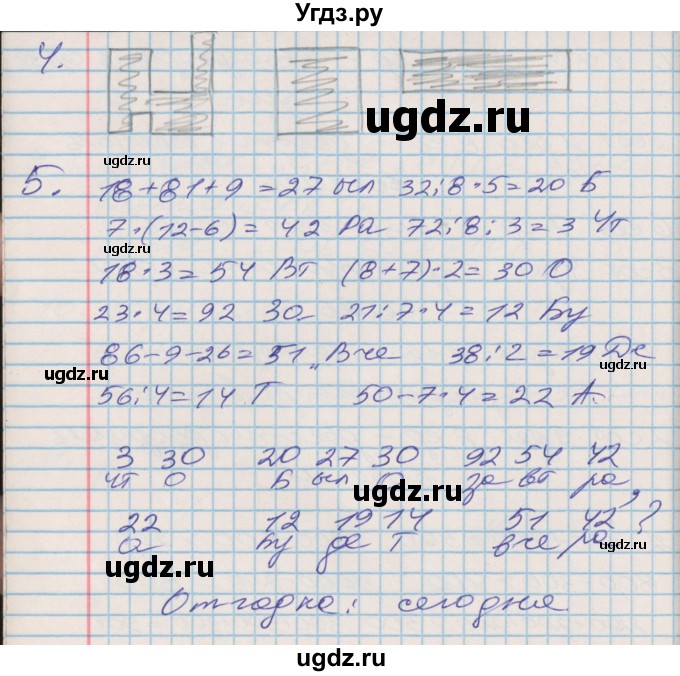 Угдз.ру
4.
ugdz.ru
ugdz.ru
5. 18+81+9=27 ыл 32:8·5=20 Б
7·(12-6)=42 Ра 72:8:3=3 Чт
ugdz.ru
18·3=54 Вт (8+7)·2=30 О
23·4=92 За 21:7·4=12 Бу
86-9-26=51 „Вче 38:2=19 Де
ugdz.ru
ugdz.ru
56:4=14 Т 50-7·4=22 А.
3 30 20 27 30 92 54 42
чт о Б ыл о за вт ра,
ugdz.ru
ugdz.ru
22 12 19 14 51 42 ?
а бу де т вче ра
ugdz.ru
ugdz.ru
Отгадка: сегодня
ugdz.ru